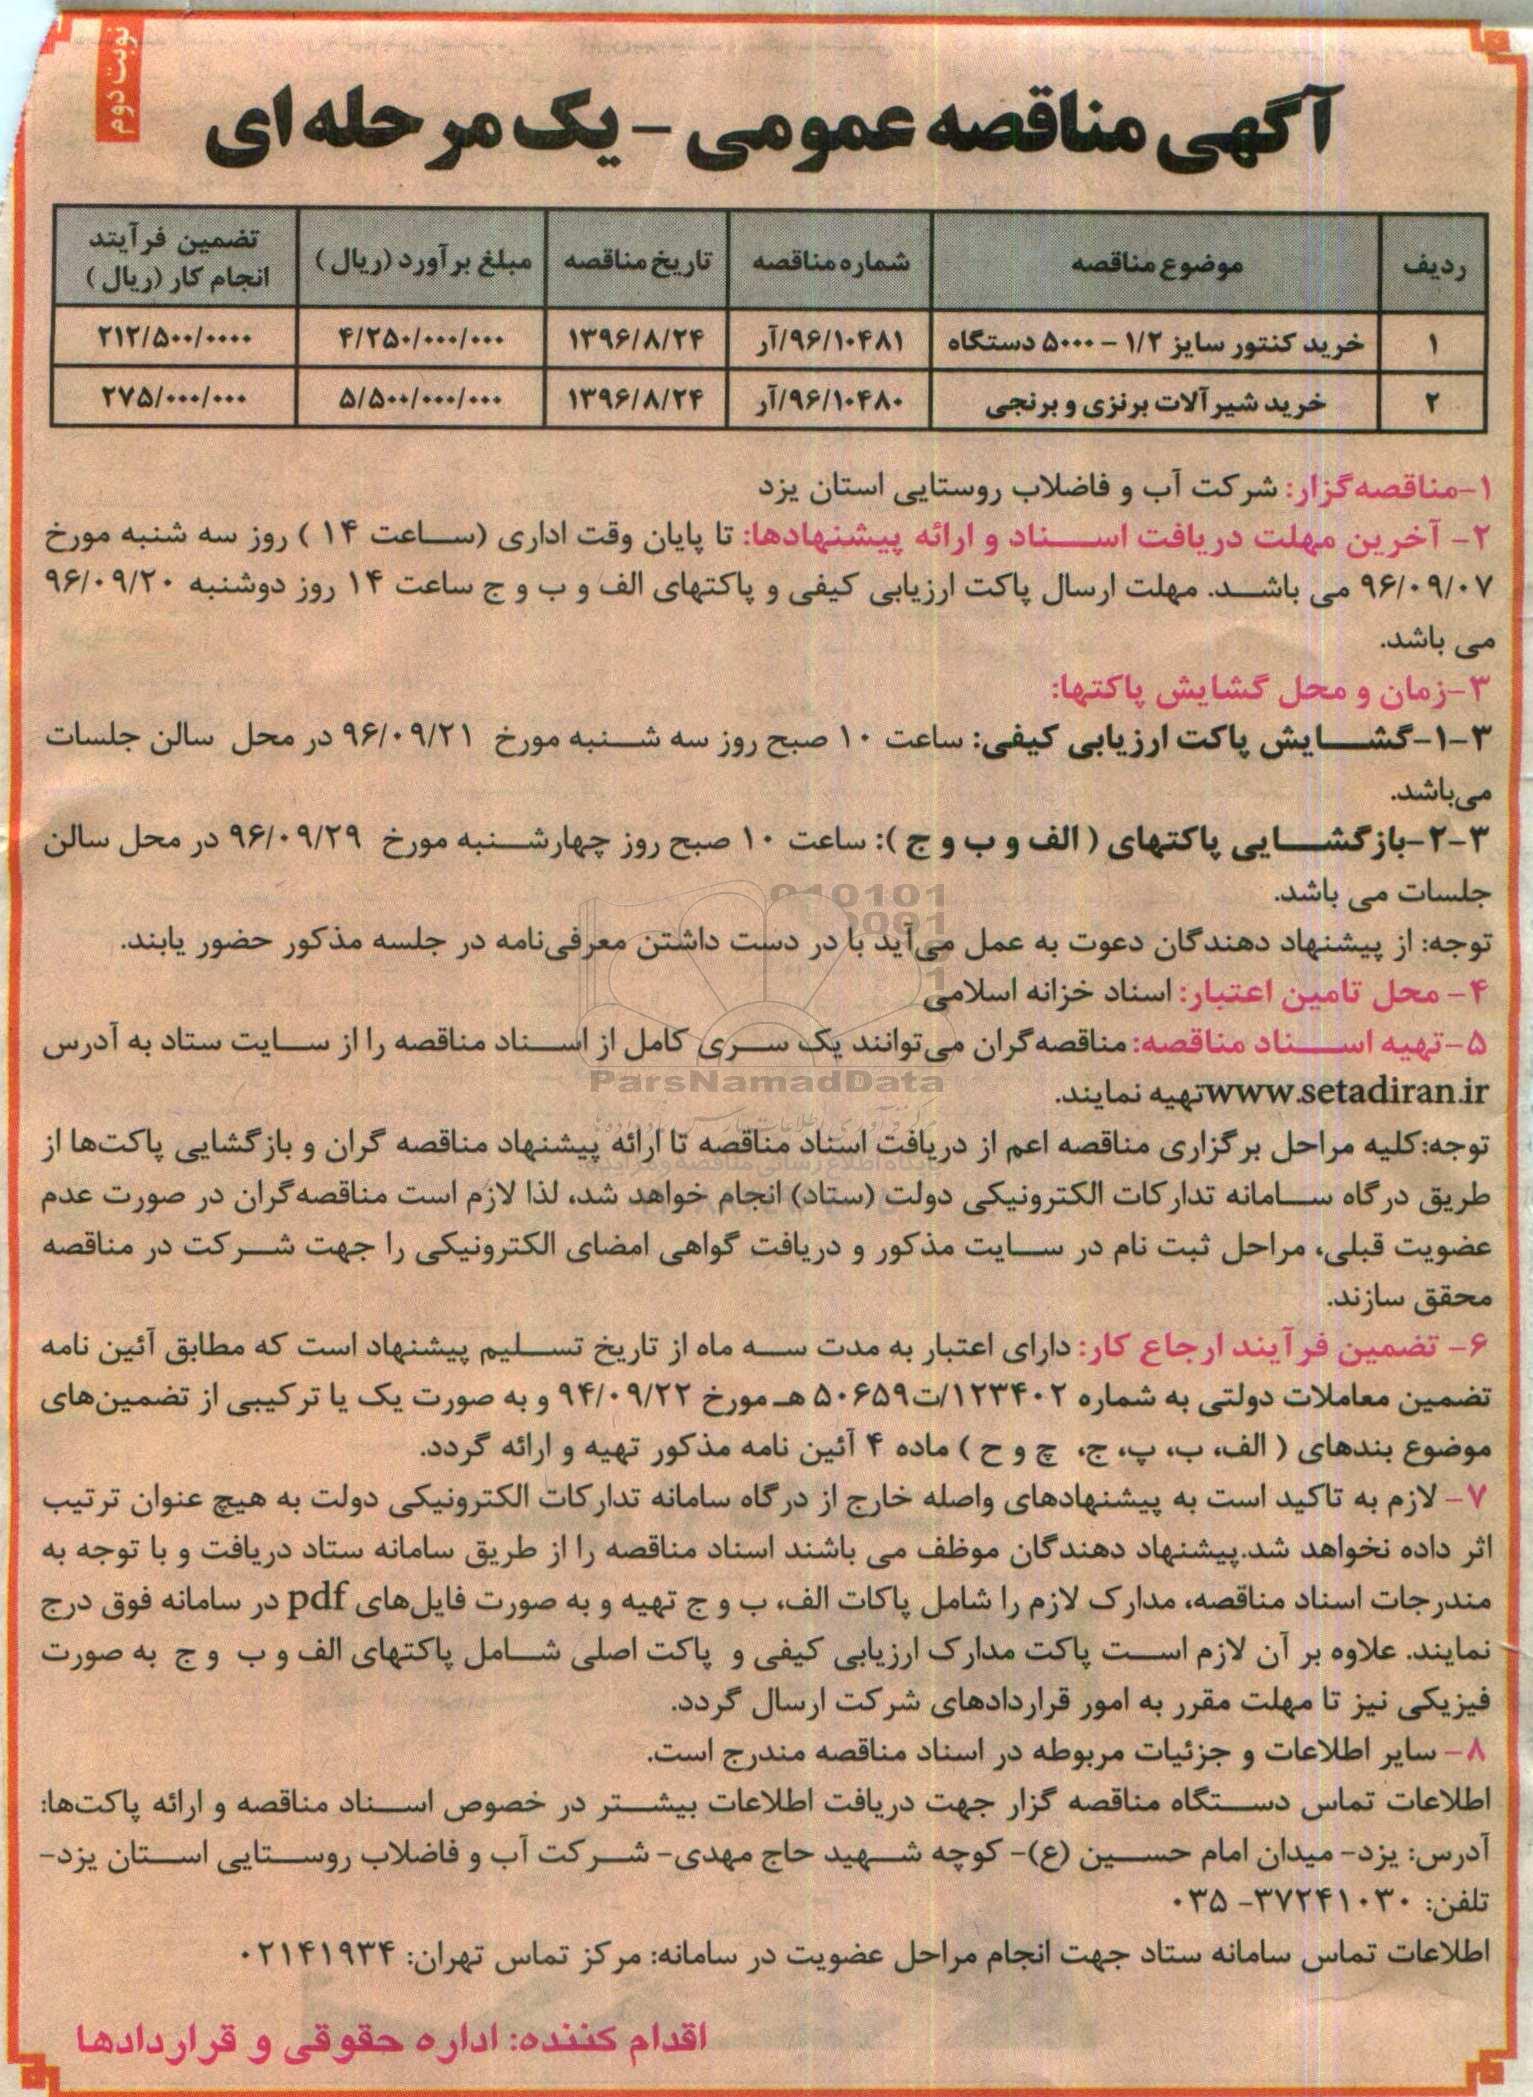 نوبت دوم
آگهی مناقصه عمومی - یک مرحله ای
ردیف | موضوع مناقصه | شماره مناقصه | تاریخ مناقصه | مبلغ برآورد (ریال) | تضمین فرآیند انجام کار (ریال)
۱ | خرید کنتور سایز ۱/۲ - ۵۰۰۰ دستگاه | ۹۶/۱۰۴۸۱/آر | ۱۳۹۶/۸/۲۴ | ۴/۲۵۰/۰۰۰/۰۰۰ | ۲۱۲/۵۰۰/۰۰۰۰
۲ | خرید شیرآلات برنزی و برنجی | ۹۶/۱۰۴۸۰/آر | ۱۳۹۶/۸/۲۴ | ۵/۵۰۰/۰۰۰/۰۰۰ | ۲۷۵/۰۰۰/۰۰۰
۱-مناقصه‌گزار: شرکت آب و فاضلاب روستایی استان یزد
۲- آخرین مهلت دریافت اسناد و ارائه پیشنهادها: تا پایان وقت اداری (ساعت ۱۴ ) روز سه شنبه مورخ
۹۶/۰۹/۰۷ می باشد. مهلت ارسال پاکت ارزیابی کیفی و پاکتهای الف و ب و ج ساعت ۱۴ روز دوشنبه ۹۶/۰۹/۲۰
می باشد.
۳-زمان و محل گشایش پاکتها:
۳-۱-گشایش پاکت ارزیابی کیفی: ساعت ۱۰ صبح روز سه شنبه مورخ ۹۶/۰۹/۲۱ در محل سالن جلسات
می‌باشد.
۳-۲-بازگشایی پاکتهای ( الف و ب و ج ): ساعت ۱۰ صبح روز چهارشنبه مورخ ۹۶/۰۹/۲۹ در محل سالن
جلسات می باشد.
توجه: از پیشنهاد دهندگان دعوت به عمل می‌آید با در دست داشتن معرفی‌نامه در جلسه مذکور حضور یابند.
۴- محل تامین اعتبار: اسناد خزانه اسلامی
۵-تهیه اسناد مناقصه: مناقصه‌گران می‌توانند یک سری کامل از اسناد مناقصه را از سایت ستاد به آدرس
www.setadiran.ir تهیه نمایند.
ParsNamadData
توجه:کلیه مراحل برگزاری مناقصه اعم از دریافت اسناد مناقصه تا ارائه پیشنهاد مناقصه گران و بازگشایی پاکت‌ها از
طریق درگاه سامانه تدارکات الکترونیکی دولت (ستاد) انجام خواهد شد، لذا لازم است مناقصه‌گران در صورت عدم
عضویت قبلی، مراحل ثبت نام در سایت مذکور و دریافت گواهی امضای الکترونیکی را جهت شرکت در مناقصه
محقق سازند.
۶- تضمین فرآیند ارجاع کار: دارای اعتبار به مدت سه ماه از تاریخ تسلیم پیشنهاد است که مطابق آئین نامه
تضمین معاملات دولتی به شماره ۱۲۳۴۰۲/ت۵۰۶۵۹ هـ مورخ ۹۴/۰۹/۲۲ و به صورت یک یا ترکیبی از تضمین‌های
موضوع بندهای ( الف، ب، پ، ج، چ و ح ) ماده ۴ آئین نامه مذکور تهیه و ارائه گردد.
۷- لازم به تاکید است به پیشنهادهای واصله خارج از درگاه سامانه تدارکات الکترونیکی دولت به هیچ عنوان ترتیب
اثر داده نخواهد شد.پیشنهاد دهندگان موظف می باشند اسناد مناقصه را از طریق سامانه ستاد دریافت و با توجه به
مندرجات اسناد مناقصه، مدارک لازم را شامل پاکات الف، ب و ج تهیه و به صورت فایل‌های pdf در سامانه فوق درج
نمایند. علاوه بر آن لازم است پاکت مدارک ارزیابی کیفی و پاکت اصلی شامل پاکتهای الف و ب و ج به صورت
فیزیکی نیز تا مهلت مقرر به امور قراردادهای شرکت ارسال گردد.
۸- سایر اطلاعات و جزئیات مربوطه در اسناد مناقصه مندرج است.
اطلاعات تماس دستگاه مناقصه گزار جهت دریافت اطلاعات بیشتر در خصوص اسناد مناقصه و ارائه پاکت‌ها:
آدرس: یزد- میدان امام حسین (ع)- کوچه شهید حاج مهدی- شرکت آب و فاضلاب روستایی استان یزد-
تلفن: ۳۷۲۴۱۰۳۰- ۰۳۵
اطلاعات تماس سامانه ستاد جهت انجام مراحل عضویت در سامانه: مرکز تماس تهران: ۰۲۱۴۱۹۳۴
اقدام کننده: اداره حقوقی و قراردادها